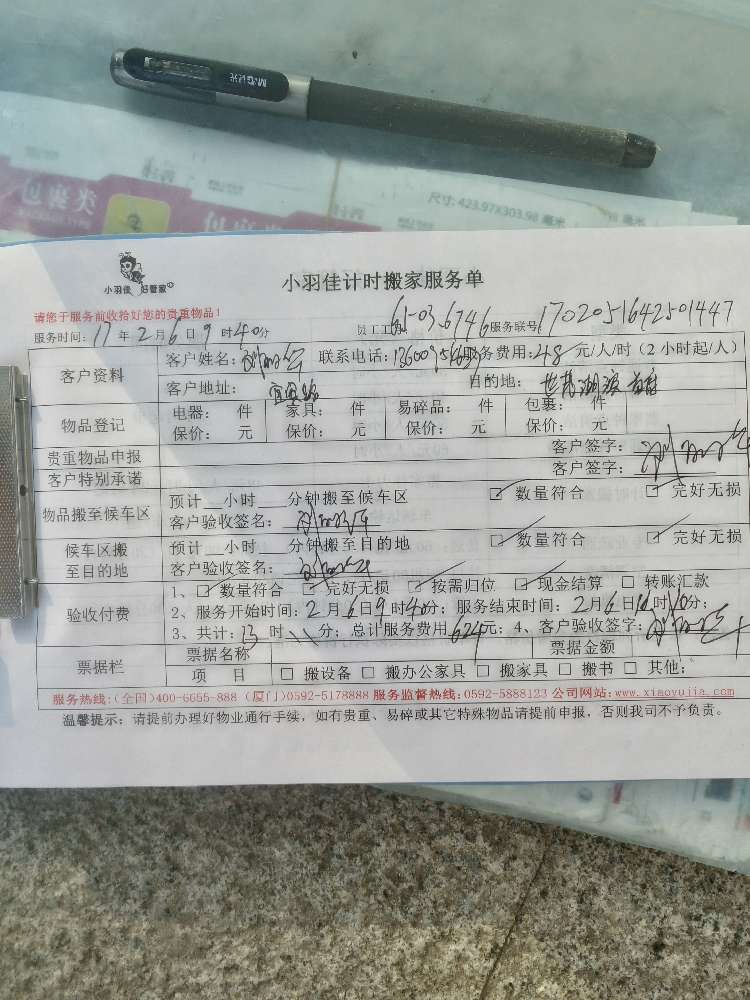 M&G晨光
包裹类
包裹类
尺寸: 423.97X303.98 毫米
小羽佳 好管家
小羽佳计时搬家服务单
请您于服务前收拾好您的贵重物品!
服务时间: 17 年 2 月 6 日 9 时 40 分 员工工 61-03.6746 服务联号: 1702051642501447
客户资料
客户姓名: 联系电话: 服务费用: 48 元/人/时 (2 小时起/人)
客户地址: 目的地:
物品登记
电器: 件 家具: 件 易碎品: 件 包裹: 件
保价: 元 保价: 元 保价: 元 保价: 元
贵重物品申报 客户签字:
客户特别承诺 客户签字:
物品搬至候车区
预计__小时__分钟搬至候车区 ☑ 数量符合 ☑ 完好无损
客户验收签名:
候车区搬至目的地
预计__小时__分钟搬至目的地 ☑ 数量符合 ☑ 完好无损
客户验收签名:
验收付费
1、☑ 数量符合 ☑ 完好无损 ☑ 按需归位 ☑ 现金结算 □ 转账汇款
2、服务开始时间: 2 月 6 日 9 时 40 分; 服务结束时间: 2 月 6 日 时 10 分;
3、共计: 13 时 分; 总计服务费用 624 元; 4、客户验收签字:
票据栏
票据名称 票据金额
项 目 □ 搬设备 □ 搬办公家具 □ 搬家具 □ 搬书 □ 其他:
服务热线:(全国)400-6655-888 (厦门)0592-5178888 服务监督热线:0592-5888123 公司网站:www.xiaoyujia.com
温馨提示: 请提前办理好物业通行手续, 如有贵重、易碎或其它特殊物品请提前申报, 否则我司不予负责。